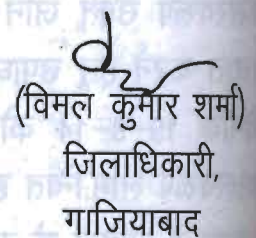 (विमल कुमार शर्मा)
जिलाधिकारी,
गाजियाबाद